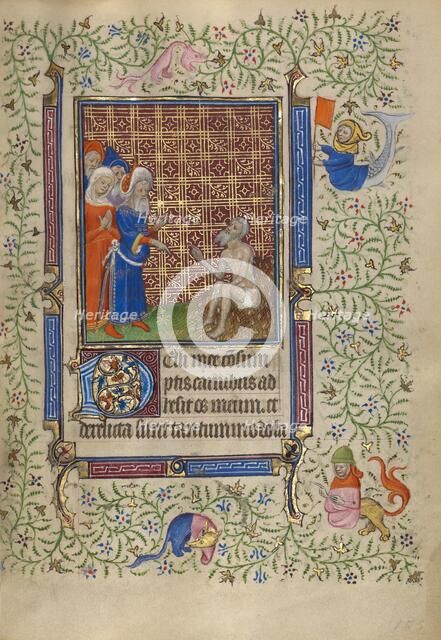 Heritage
Heritage
Heritage
Heritage
Heritage
Pelli mee cōsum
ptis carnibus ad
hesit os meum. et
derelicta sunt tantummodo la